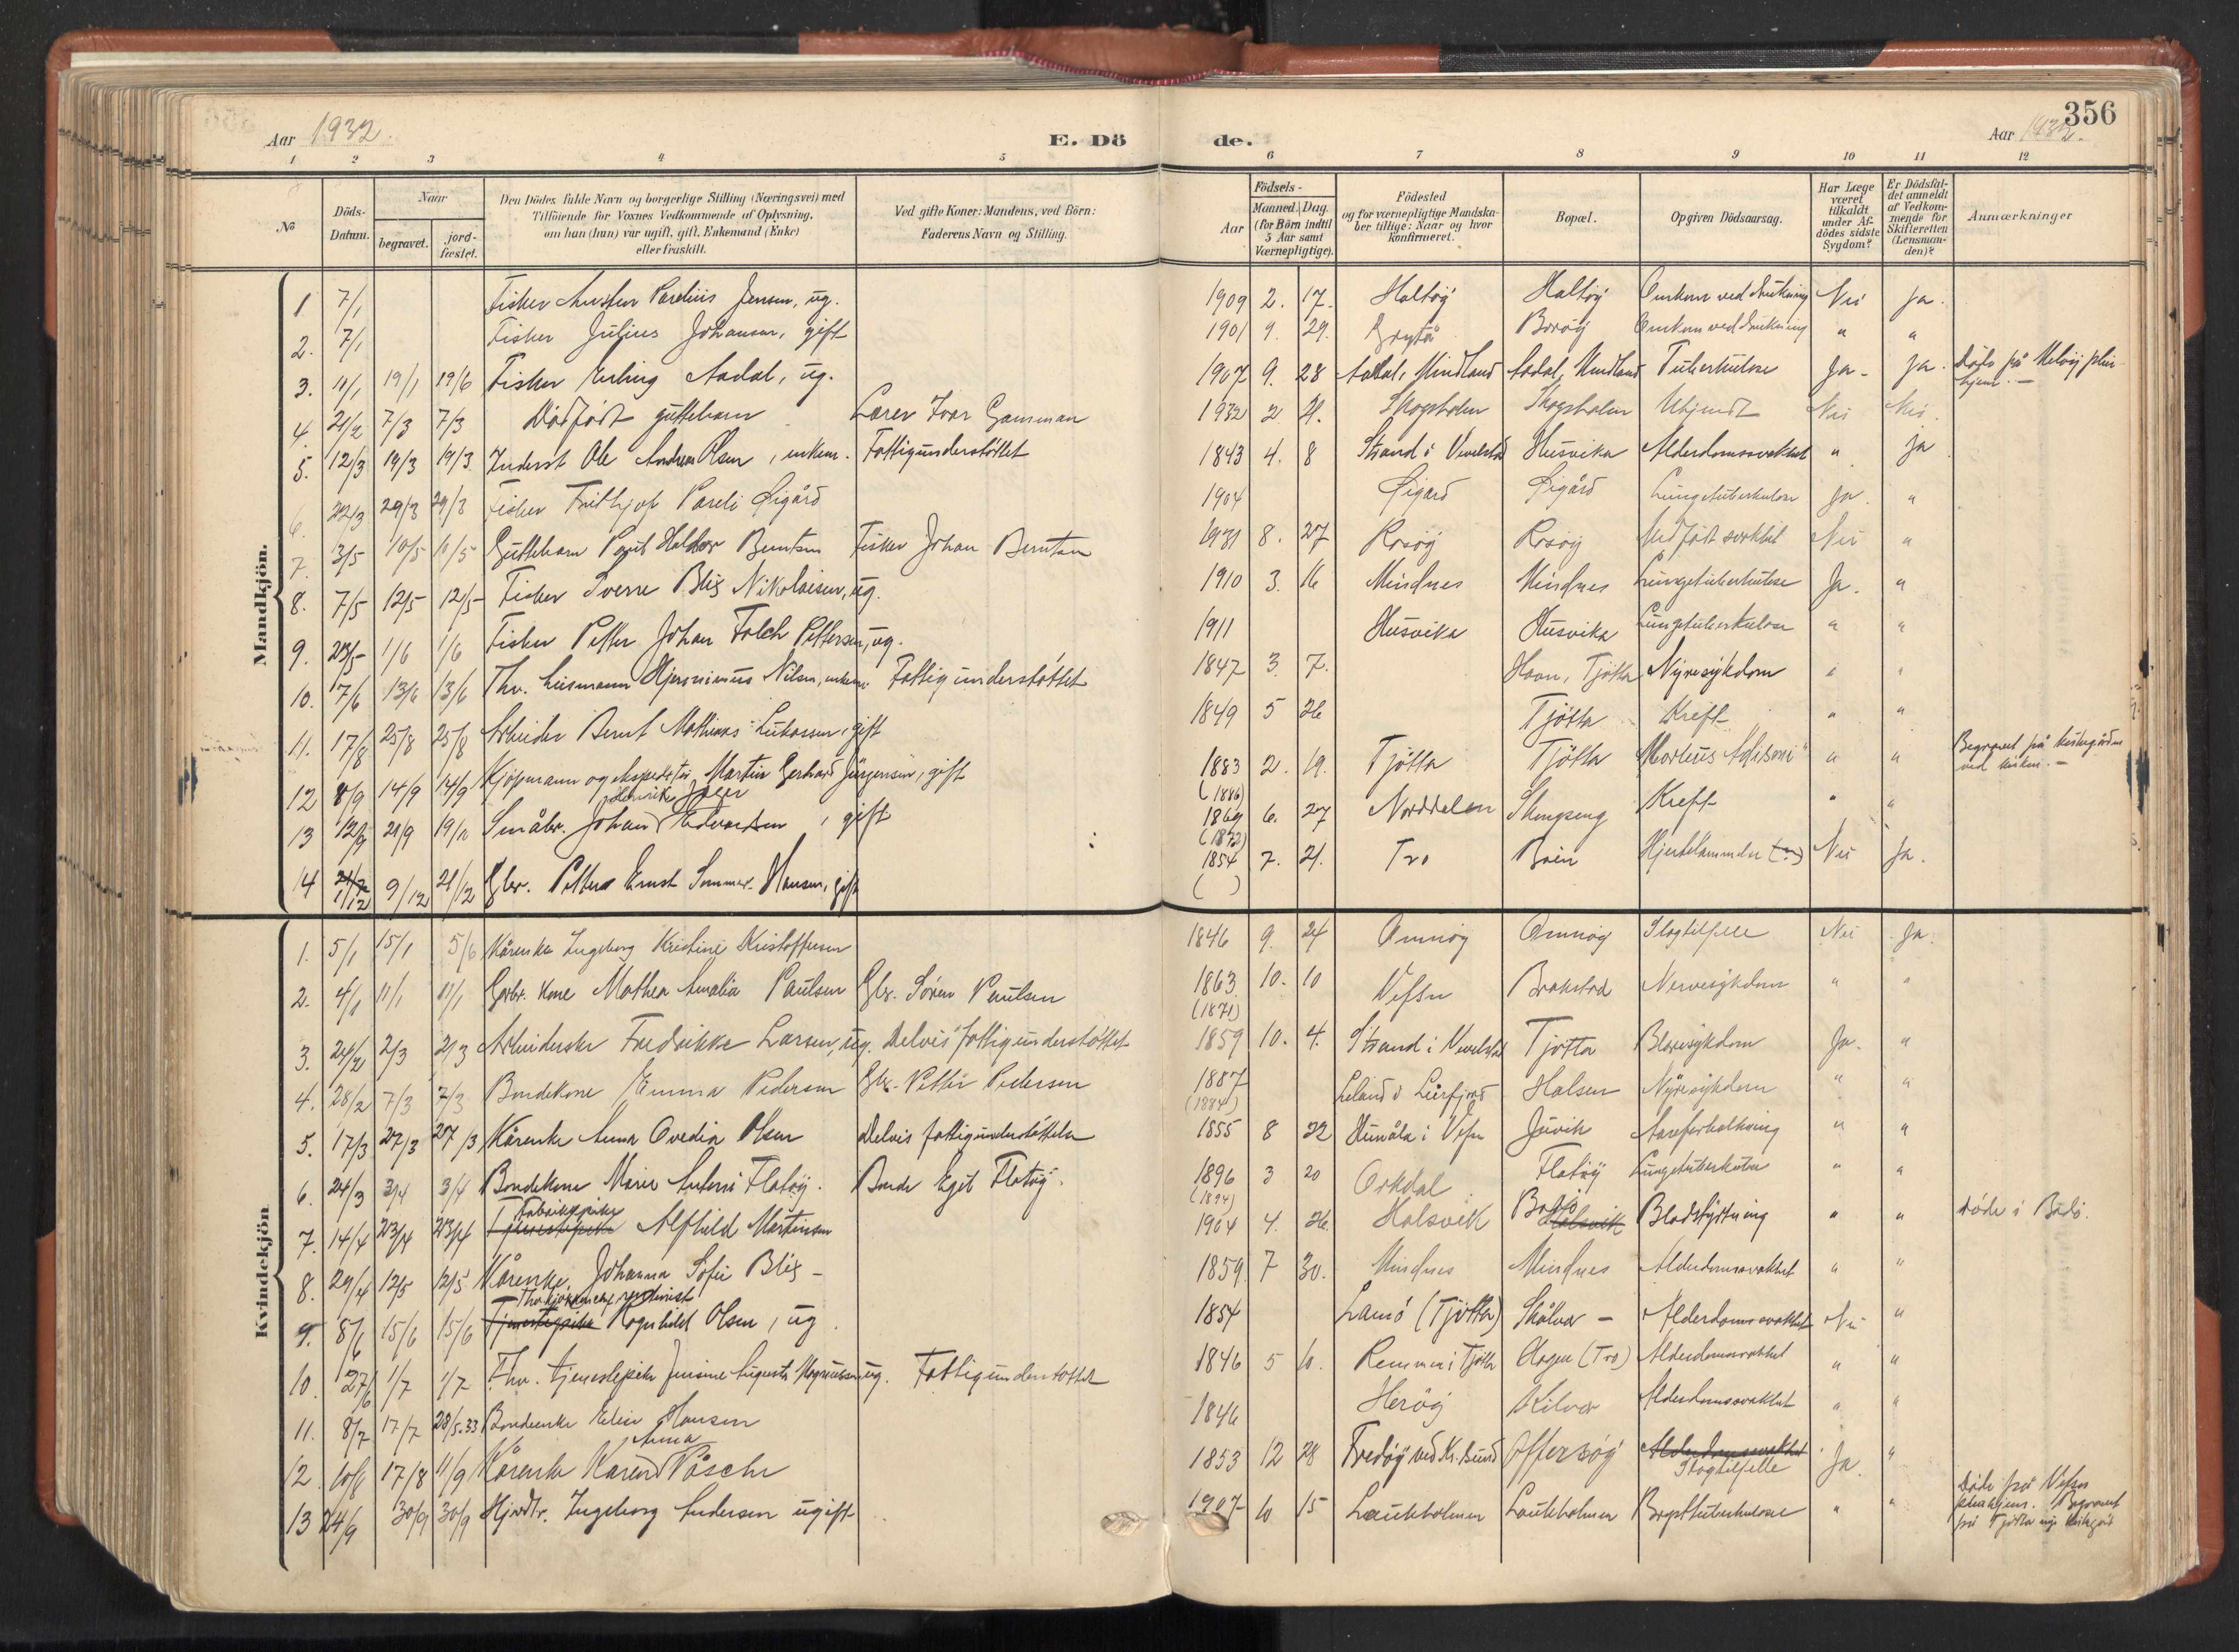 356
Aar 1932. E. Dö de. Aar 1932.
1 2 3 4 5 6 7 8 9 10 11 12
No
Döds-Datum.
Naar
begravet.
jord-fæstet.
Den Dödes fulde Navn og borgerlige Stilling (Næringsvei) med
Tilföiende for Voxnes Vedkommende af Oplysning,
om han (hun) var ugift, gift, Enkemand (Enke)
eller fraskilt.
Ved gifte Koner: Mandens, ved Börn:
Faderens Navn og Stilling.
Födsels-
Aar
Maaned. Dag.
(for Börn indtil
5 Aar samt
Værnepligtige).
Födested
og for værnepligtige Mandska-
ber tillige: Naar og hvor
konfirmeret.
Bopæl.
Opgiven Dödsaarsag.
Har Læge
været
tilkaldt
under Af-
dödes sidste
Sygdom?
Er Dödsfal-
det anmeldt
af Vedkom-
mende for
Skifteretten
(Lensman-
den)?
Anmærkninger
Mandkjön.
1 7/1 Fisker Parelius Jensen, ug. 1909 2. 17. Haltøy Haltøy Omkom ved drukning Nei Ja.
2. 7/1 Fisker Julius Johansen, gift 1901 9. 29. Borøy Omkom ved drukning " "
3. 11/1 19/1 19/6 Fisker Erling Aadal, ug. 1907 9. 28 Aadal, Mindland Aadal, Mindland Tuberkulose Ja- Ja. Døde på pleie-
hjem. -
4. 21/2 7/3 7/3 Dødfødt guttebarn Lærer Ivar Gamman 1932 2 21. Skogsholm Skogsholm Ukjendt Nei Nei.
5. 12/3 19/3 19/3 Inderst Ole Andreas Olsen, enkem. Fattigunderstøttet 1843 4. 8 Strand i Vevelstad Husvika Alderdomssvakhet " ja
6. 22/3 29/3 29/3 Fisker Frithjof Pareli Øigård 1904 Øigård Øigård Lungetuberkulose Ja. "
7. 3/5 10/5 10/5 Guttebarn Halder Berntsen Fisker Johan Berntsen 1931 8. 27 Rosøy Rosøy Medfødt svakhet Nei "
8. 7/5 12/5 12/5 Fisker Sverre Blix Nikolaisen, ug. 1910 3. 16 Mindnes Mindnes Lungetuberkulose Ja. "
9. 23/5 1/6 1/6 Fisker Petter Johan Falch Pettersen, ug. 1911 Husvika Husvika Lungetuberkulose " "
10. 7/6 13/6 13/6 Fhv. Hjeronimus Nilsen, enkem. Fattigunderstøttet 1847 3. 7. Tjøtta Nyresykdom " "
11. 17/8 25/8 25/8 Arbeider Bernt Mathias Lukassen, gift 1849 5 26 Tjøtta Kreft " "
12 8/9 14/9 14/9 Kjøpmann og ekspeditør Martin Gerhard Jürgensen, gift 1883 2. 19. Tjøtta Tjøtta "Morbus Adisoni" " " Begravet på kirkegården
ved kirken. -
(1886)
13 12/9 21/9 Henrik Jæger
Småbr. Johan Edvardsen, gift 1869 6. 27 Norddalen Kreft " "
(1873)
14 1/12 9/12 21/12 Gbr. Petter Ernst Sommer Hansen, gift 1854 7. 21. Tro Hjertelammelse (?) Nei Ja.
( )
Kvindekjön
1. 5/1 15/1 5/6 Kårenke Ingeborg Kristine Kristoffersen 1846 9. 24 Omnøy Omnøy Slagtilfelle Nei Ja.
2. 4/1 11/1 11/1 Gbr. kone Mathea Amalia Paulsen Gbr. Søren Paulsen 1863 10. 10 Vefsn Brakstad Nervesykdom " "
(1871)
3. 24/2 2/3 2/3 Arbeiderske Fredrikke Larsen, ug. Delvis fattigunderstøttet 1859 10. 4. Strand i Vevelstad Tjøtta Blæresykdom Ja. "
4. 28/2 7/3 7/3 Bondekone Emma Pedersen Gbr. Petter Pedersen 1887 Leland i Leirfjord Halsen Nyresykdom " "
(1884)
5. 17/3 27/3 27/3 Kårenke Anna Ovedia Olsen Delvis fattigunderstøttet 1855 8 22 i Vefsn Juvik Aareforkalkning " "
6. 24/3 3/4 3/4 Bondekone Marie Antonie Flatøy. Bonde Egil Flatøy. 1896 3 20 Orkdal Flatøy Lungetuberkulose " "
(1894)
7. 14/4 23/4 23/4 Fabrikkpike
Tjenestepike Alfhild Martinsen 1904 4. 26 Halsvik Bodø
Halsvik Blodstyrtning " " Døde i Bodø.
8. 29/4 12/5 12/5 Kårenke. Johanna Sofie Blix - 1859 7 30. Mindnes Mindnes Alderdomssvakhet " "
9. 8/6 15/6 15/6 Tjenestepike Ragnhild Olsen, ug. 1854 (Tjøtta) Skålvær - Alderdomssvakhet Nei "
10. 27/6 1/7 1/7 Fhv. tjenestepike Jensine Augusta Magnussen ug. Fattigunderstøttet 1846 5 10. i Tjøtta (Tro) Alderdomssvakhet " "
11. 8/7 17/7 28/5.33 Bondeenke Hansen 1846 Herøy Kilvær Alderdomssvakhet " "
12 10/8 17/8 11/9 Anna
Kårenke Karen Påsche 1853 12 28 Fredøy ved Kr.sund Offersøy Alderdomssvakhet
Slagtilfelle Ja. "
13 24/9 30/9 30/9 Ingeborg Andersen ugift 1907 10 15 Laukholmen Laukholmen Brysttuberkulose " " Døde på Vefsn
pleiehjem. Begravet
på Tjøtta nye kirkegård